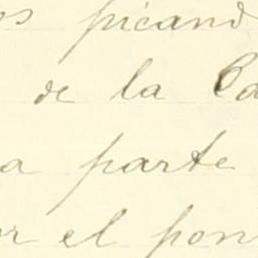 os picand
de la Ca
a parte
or el pon